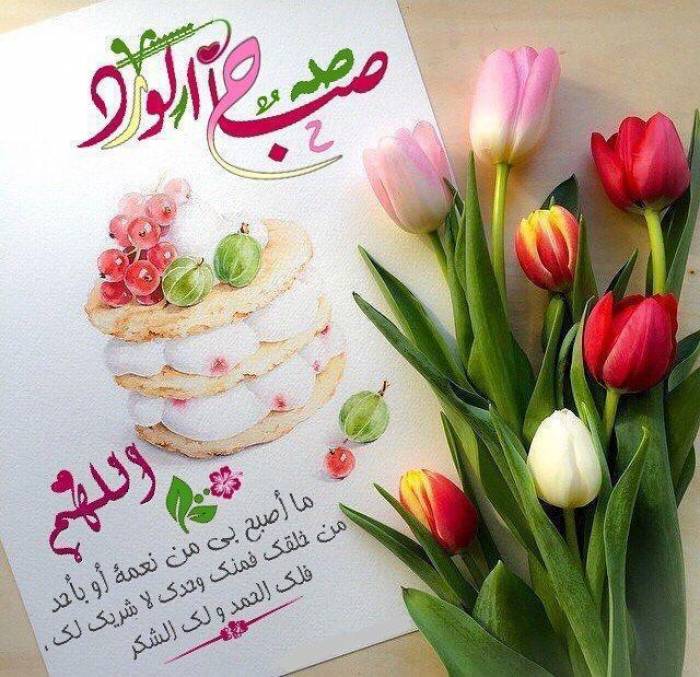 صباح الورد
اللهم
ما أصبح بى من نعمة أو بأحد
من خلقك فمنك وحدك لا شريك لك ،
فلك الحمد و لك الشكر